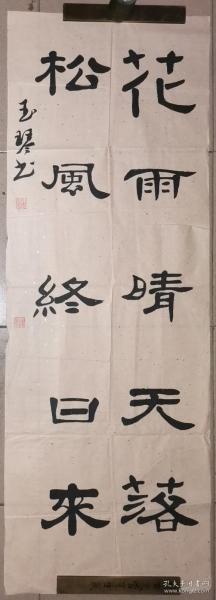 花雨晴天落
松風終日來
玉琴书